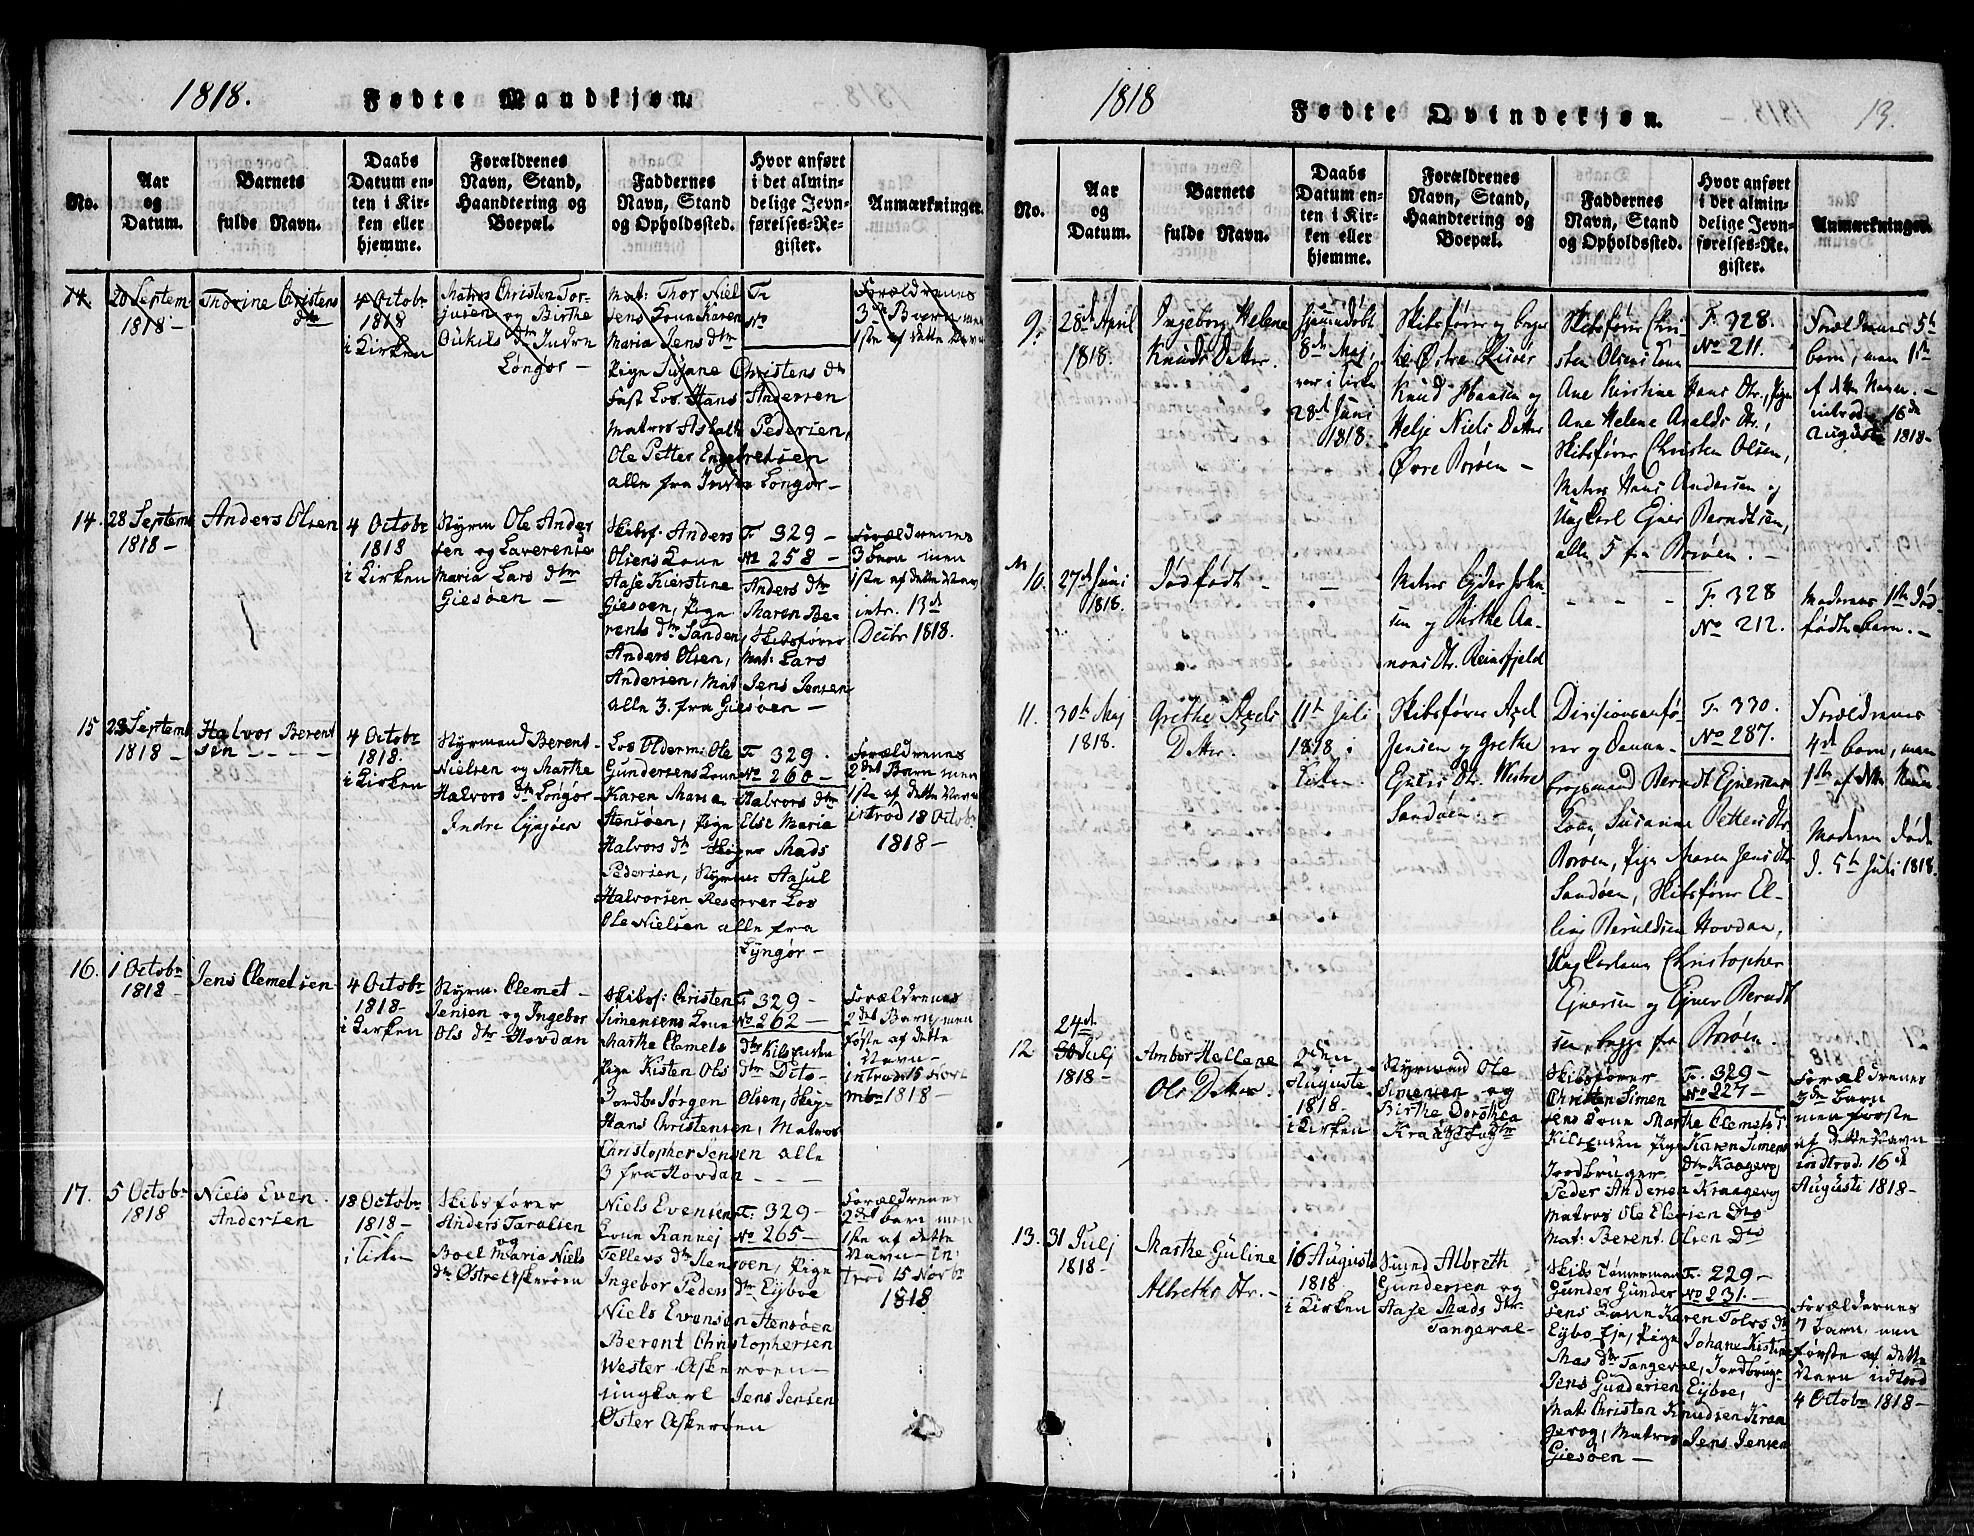 1818.
Fødte Mandkjøn.
No.
Aar
og
Datum.
Barnets
fulde Navn.
Daabs
Datum en-
ten i Kir-
ken eller
hjemme.
Forældrenes
Navn, Stand,
Haandtering og
Boepæl.
Faddernes
Navn, Stand
og Opholdsted.
Hvor anført
i det almin-
delige Jevn-
førelses-Re-
gister.
Anmærkninger.
14.
20 Septem
1818 —
Thorine Christens
dtr
4 Octobr
1818
i Kirken
Matros Christen Tor-
og Birthe
dtr Indre
Longør —
Mat: Thor Niel
sens Kone Karen
Maria Jens dtr
Pige Susane Christens dtr
Fast Los Hans Andersen
Matros Pedersen,
Ole Petter
alle fra Indre Longør —
F:
No
Forældrenes
3de Barn men
1ste af dette Navn
14.
28 Septem
1818 —
Anders Olsen
4 Octobr
1818
i Kirken
Styrm Ole Ander
sen og Laverense
Maria Lars dtr
Giesøen —
Skibsf: Anders
Olsens Kone
Aase Kierstine
Giesøen, Pige Anders dtr
Maren Be-
rents dtr Sanden, Skibsfører
Anders Olsen, Mat: Lars
Andersen, Mat Jens Jensen
alle 3. fra Giesøen —
F 329 —
No 258 —
Forældrenes
3 barn men
1ste af dette Nav
intr. 13d
Decbr 1818.
15
23 Septemb
1818 —
Halvor Berent
sen — — —
4 Octobr
1818.
i Kirken
Styrmand Berent
Nielsen og Marthe
Halvors dtr Longør
Indre Lyngøer
Los Olderm: Ole
Gundersens Kone
Karen Maria
Stensøen, Pige Else Maria
Halvors dtr
Halvors dtr Mads
Pedersen, Styrm Aasul
Halvorsen Reserver Los
Ole Nielsen alle fra
Lyngør —
F 329.
No 260 —
Forældrenes
2det Barn men
1ste af dette Navn
introd 18 Octob
1818 —
16.
1 Octobr
1818 —
Jens Clemetsen
4 Octobr
1818 —
i Kirken
Styrm. Clemet
Jensen og Ingebor
Ols dtr Hovdan
Skibsf: Christen
Simensens Kone
Marthe Clemets dtr Kilsunden
Pige Kisten Ols dtr Dito —
Jordbr Jørgen Olsen,
Hans Christensen, Matros
Christopher Jensen alle
3 fra Hovdan — — —
F 329 —
No 262 —
Forældrenes
2det Barn men
føste af dette
Navn —
introd 15 Nov
mbr 1818 —
17.
5 Octobr
1818
Niels Even
Andersen
18 Octobr
1818 —
i Kirken
Skibsfører
Anders Taralsen
og
Boel Maria Niels
dtr Østre Askerøen
Niels Evensen
Kone Rannej
Tellevs dtr Stensøen, Pige
Ingebor Peders dtr Eyboe
Niels Evensen Stensøen
Berent Christophersen
Wester Askerøen —
ungkarl Jens Jensen
Øster Askerøen
F. 329 —
No 265 —
Forældrenes
2det barn men
1ste af dette
Navn — In-
trod 15 Novbr
1818
1818
Fødte Qvindekjøn.
13.
No.
Aar
og
Datum.
Barnets
fulde Navn.
Daabs
Datum en-
ten i Kir-
ken eller
hjemme.
Forældrenes
Navn, Stand,
Haandtering og
Boepæl.
Faddernes
Navn, Stand
og Opholdsted.
Hvor anført
i det almin-
delige Jevn-
førelses-Re-
gister.
Anmærkninger.
9.
28de April
1818.
Ingeborg Helene
Knuds Datter.
Hjemmedøbt
8de Maj,
var i Kirke
28de Juni
1818.
Skibsfører og
Østre Riisøe
Knud Hansen og
Helje Niels Datter
Øvre Borøen —
Skibsfører Chri-
sten Olsens Kone
Ane Kirstine Hans Dtr., Pige
Ane Helene Aralds Dtr.,
Skibsfører Christen Olsen,
Matros Hans Andersen og
Ungkarl Ejner Berndtsen,
alle 5 fra Borøen. —
F. 328.
No 211.
Forældrenes 5te
barn, men 1ste
af dette Navn. —
introd. 16de
Augusti 1818 —
10.
27de Juni
1818.
Dødfødt —
—
Matros Ejder Joha
sen og Birthe Aa-
nons Dtr. Reinsfjeld
— — —
F. 328
No 212.
Moderens 1ste Død-
fødte barn. —
11.
30te Maj
1818.
Grethe Axels
Datter.
11te Juli
1818 i
Kirken
Skibsfører Axel
Jensen og Grethe
Ejners Dtr. Westre
Sandøen. —
Divisionsanfø-
rer og Danne-
brogsmand Berndt Ejnersens
Kone Susanne Petters Dtr
Borøen, Pige Maren Jens Dtr
Sandøen, Skibsfører El-
lius Beruldsen Hovdan,
Ungkarlene Christopher
Ejnersen og Ejner Berndt
sen, begge fra Borøen.
F. 330.
No 287.
Forældrenes
4de barn, men
1ste af dette Navn.
Moderen døde
d. 5te Juli 1818.
12
24d
30 Julj
1818 —
Ambor Hellene
Ols Datter.
2den
Auguste
1818.
i Kirken
Styrmand Ole
Simensen og
Birthe Dorothea
dtr
Skibsfører
Christen Simen
sens Kone Marthe Clemets d
Kilsunden Pige Karen Simens
Jordbruger dtr Kragerog,
Peder Andersen Kraagerog
Matros Ole Elersen Dto
Mat: Berent Olsen Dto
F. 329 —
No 227 —
Forældrenes
3de barn
men første
af dette Navn
indtrod. 16d
Augusti 1818 —
13.
31 Julj
1818 —
Marthe Guline
Albreths Dtr. —
16 Auguste
1818
i Kirken
Svend Albreth
Gundersen og
Aase Mads dtr.
Tangeval —
Skibs Tømmerman
Gunder Gunder
sens Kone Karen Tolvs dtr
Eybo Eje, Pige Johane Kistine
Mas dtr Tangeval, Jordbrug-
Jens Gundersen Eyboe,
Mat Christen Knudsen Kraa
gerog, Matros Jens Jensen
Giesøen —
F. 229 —
No 231. —
Forælderenes
7 barn, men
første af dette
Navn indtrod
4 Octobr 1818 —